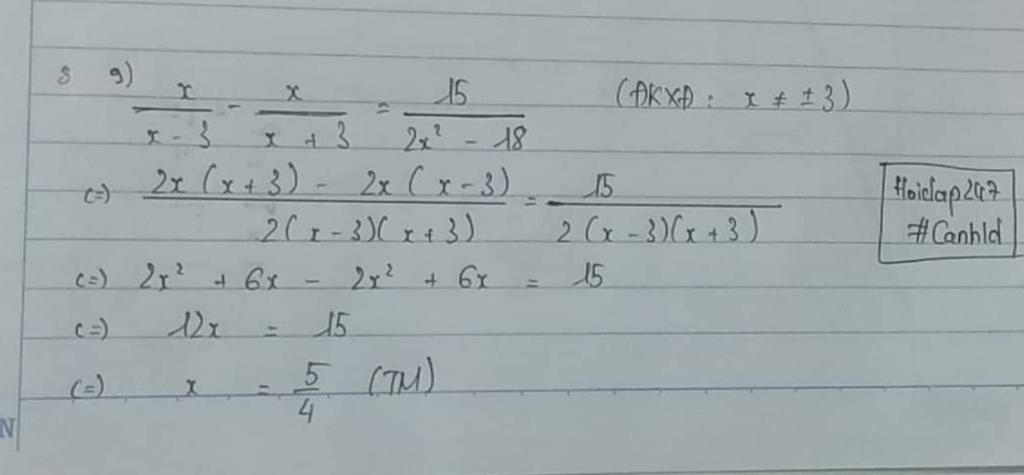 8 9) x/(x - 3) - x/(x + 3) = 15/(2x² - 18) (ĐKXĐ : x ≠ ±3)
<=> (2x(x+3) - 2x(x-3))/(2(x-3)(x+3)) = 15/(2(x-3)(x+3))
Hoidap247
#Canhld
<=> 2x² + 6x - 2x² + 6x = 15
<=> 12x = 15
<=> x = 5/4 (TM)
N